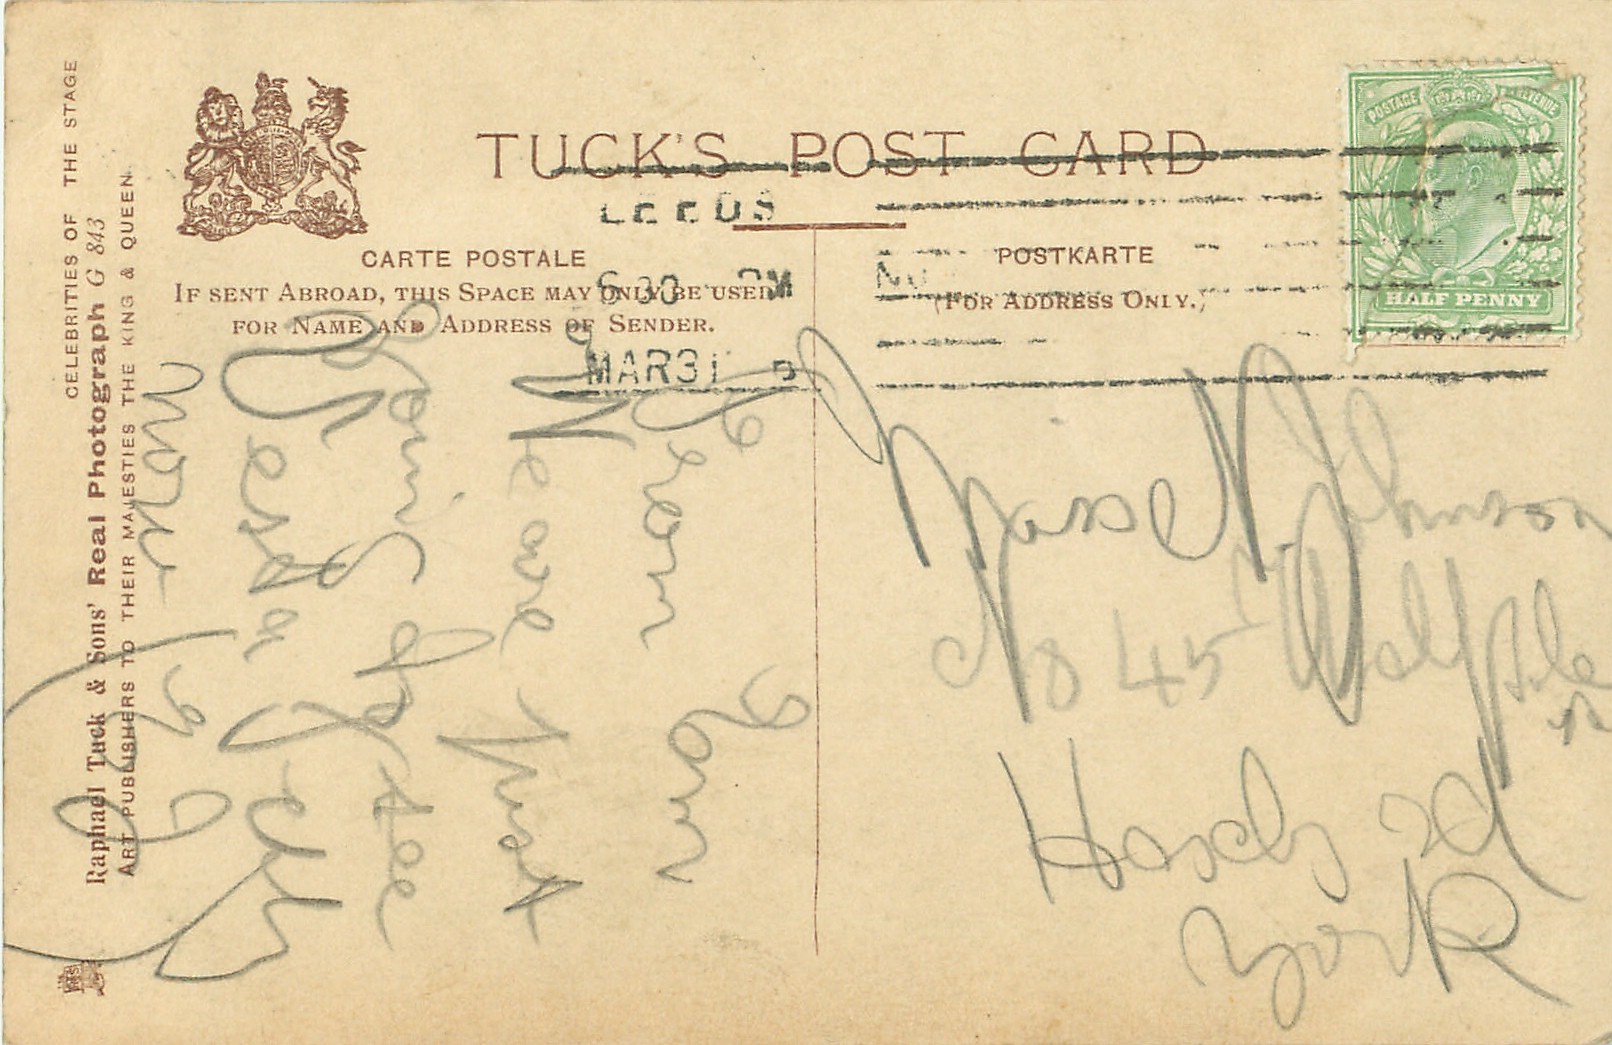 CELEBRITIES OF THE STAGE
Raphael Tuck & Sons' Real Photograph G 843
ART PUBLISHERS TO THEIR MAJESTIES THE KING & QUEEN.
TUCK'S POST CARD
CARTE POSTALE
IF SENT ABROAD, THIS SPACE MAY ONLY BE USED
FOR NAME AND ADDRESS OF SENDER.
POSTKARTE
(FOR ADDRESS ONLY.)
LEEDS
6 30 PM
MAR 31
POSTAGE REVENUE
HALF PENNY
Dear
We are Just
to the
Yesterday
Miss N. Johnson
No 45
Rd
York